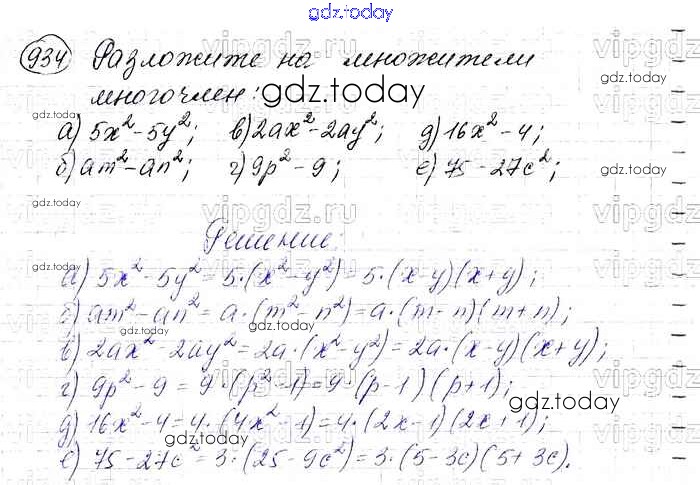 gdz.today
934 Разложите на множители
многочлен:
gdz.today
а) 5x²-5y²; в) 2ax²-2ay²; д) 16x²-4;
б) am²-an²; г) 9p²-9; е) 75-27c²;
gdz.today
vipgdz.ru
Решение:
а) 5x²-5y²=5·(x²-y²)=5·(x-y)(x+y);
б) am²-an²=a·(m²-n²)=a·(m-n)(m+n);
в) 2ax²-2ay²=2a·(x²-y²)=2a·(x-y)(x+y);
г) 9p²-9=9·(p²-1)=9·(p-1)(p+1);
д) 16x²-4=4·(4x²-1)=4·(2x-1)(2x+1);
е) 75-27c²=3·(25-9c²)=3·(5-3c)(5+3c).